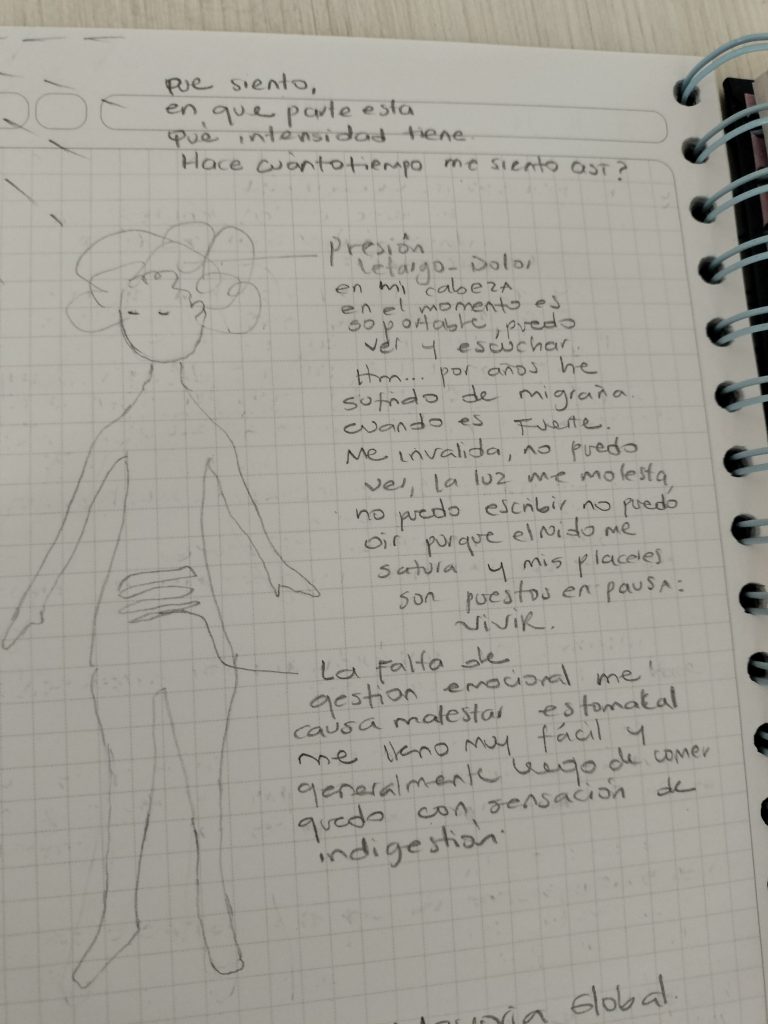 que siento,
en que parte esta
què intensidad tiene
Hace cuànto tiempo me siento así?
Presión
Letargo - Dolor
en mi cabeza
en el momento es
soportable, puedo
ver y escuchar.
Hm... por años he
sufrido de migraña.
cuando es Fuerte.
Me invalida, no puedo
ver, la luz me molesta,
no puedo escribir no puedo
oir porque el ruido me
satura y mis placeres
son puestos en pausa:
vivir.
La falta de
gestion emocional me
causa malestar estomakal
me lleno muy fácil y
generalmente luego de comer
quedo con sensación de
indigestión.
Global.